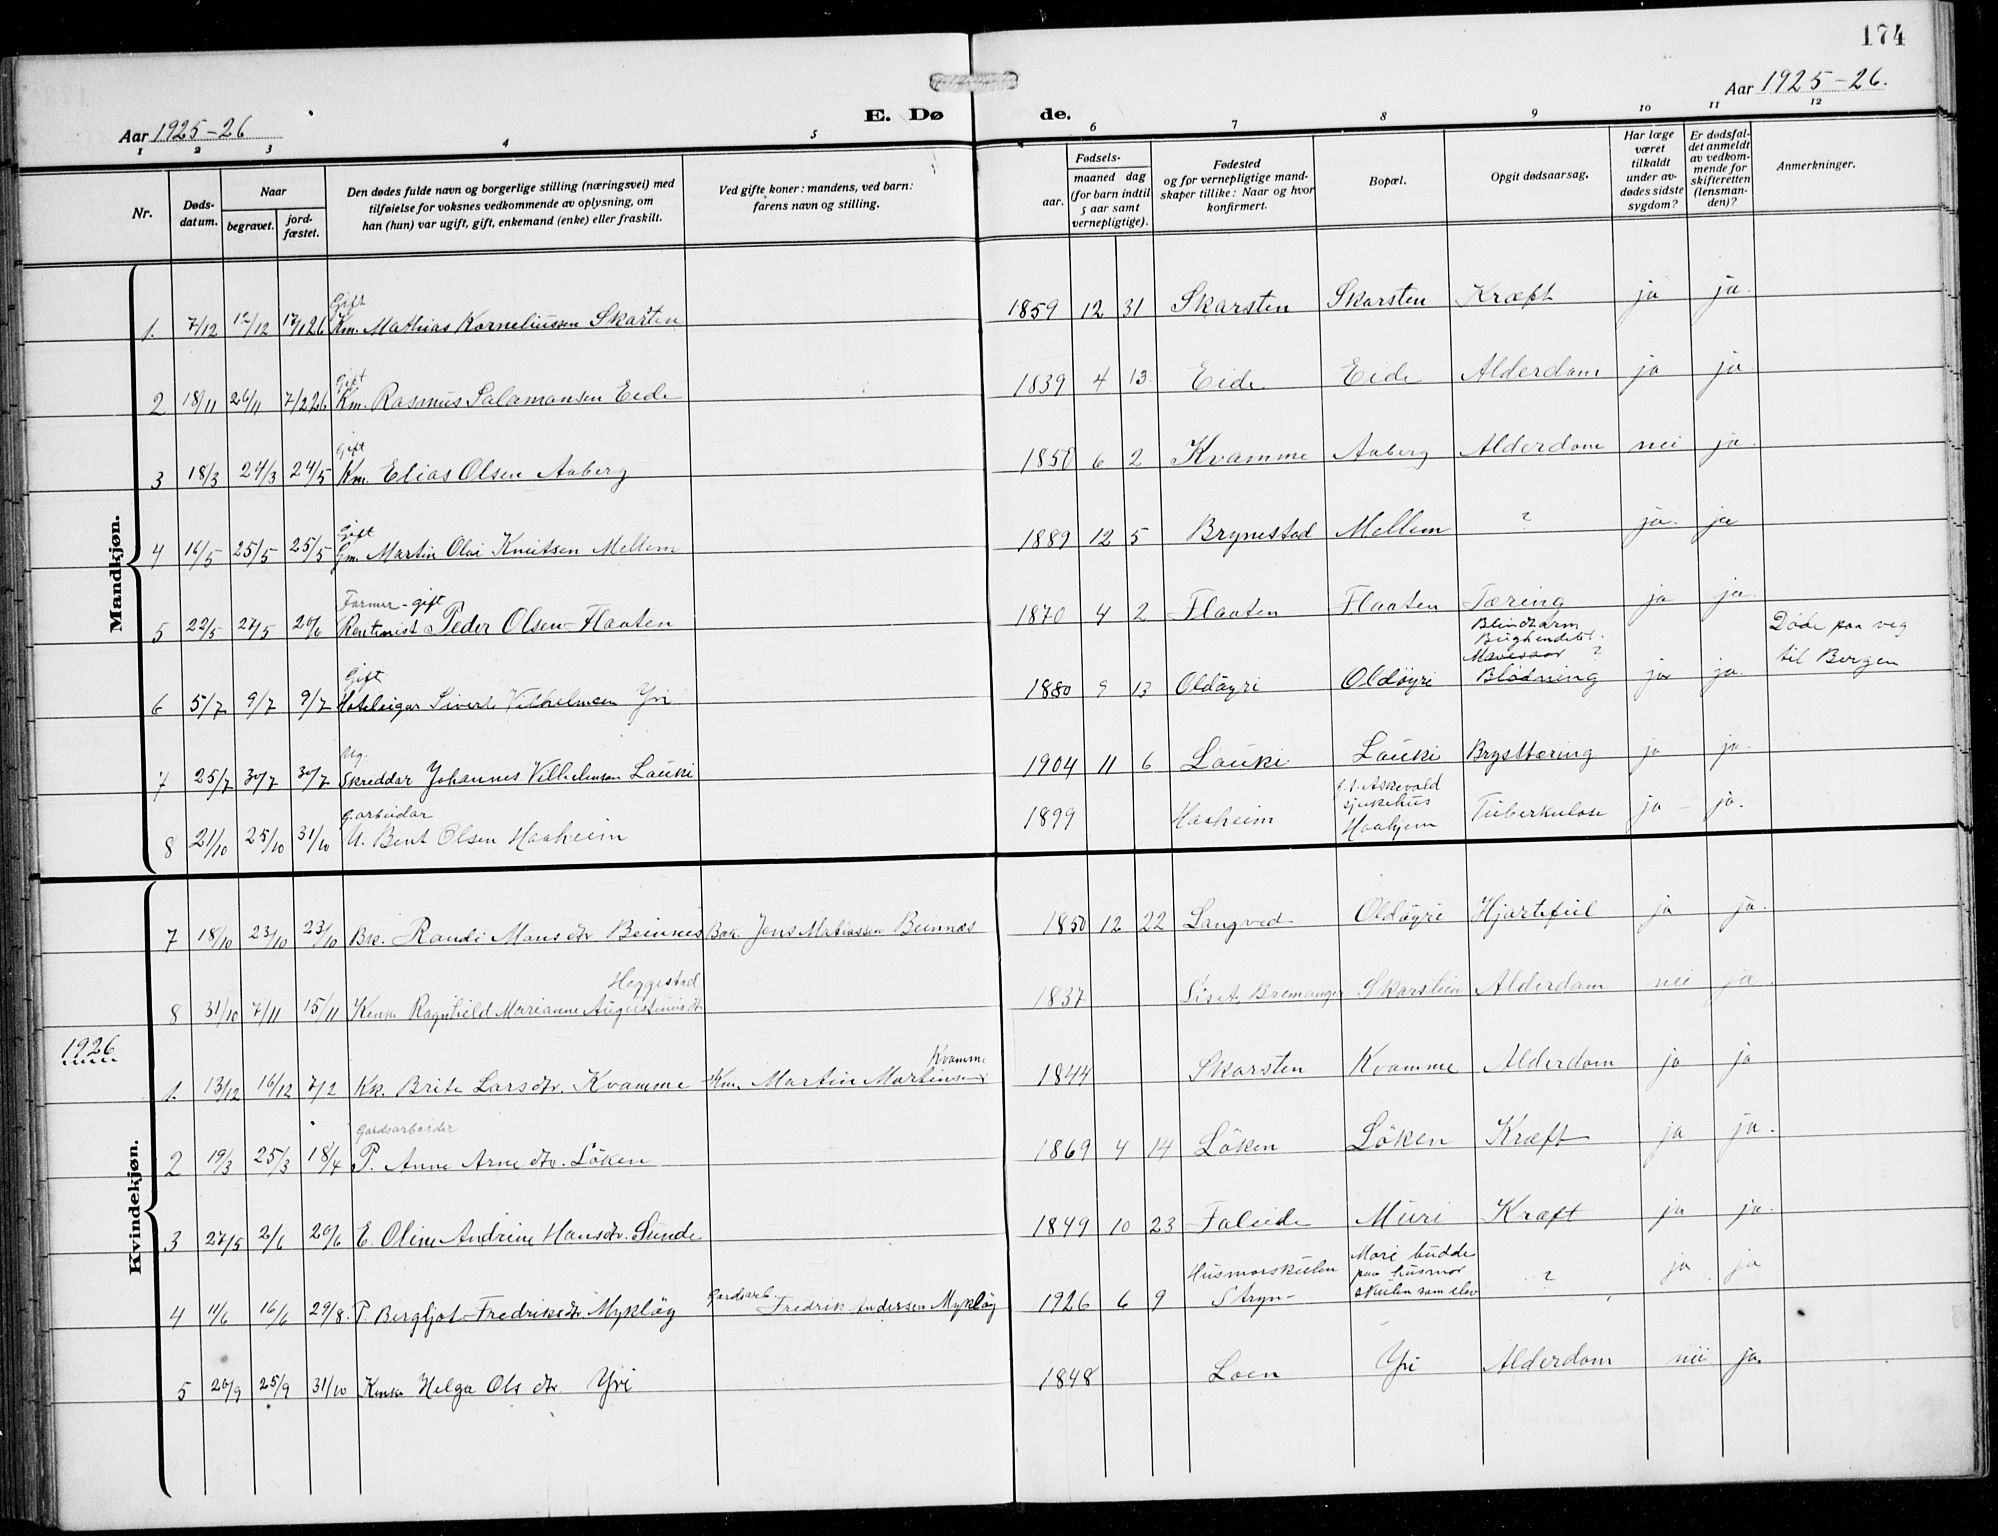 174
Aar 1925-26
E. Døde.
Aar 1925-26.
1 2 3 4 5 6 7 8 9 10 11 12
Nr.
Døds-
datum.
Naar
begravet.
jord-
fæstet.
Den dødes fulde navn og borgerlige stilling (næringsvei) med
tilføielse for voksnes vedkommende av oplysning, om
han (hun) var ugift, gift, enkemand (enke) eller fraskilt.
Ved gifte koner: mandens, ved barn:
farens navn og stilling.
Fødsels-
aar.
maaned dag
(for barn indtil
5 aar samt
vernepligtige).
Fødested
og for vernepligtige mand-
skaper tillike: Naar og hvor
konfirmert.
Bopæl.
Opgit dødsaarsag.
Har læge
været
tilkaldt
under av-
dødes sidste
sygdom?
Er dødsfal-
det anmeldt
av vedkom-
mende for
skifteretten
(lensman-
den)?
Anmerkninger.
Mandkjøn.
Gift
1. 7/12 12/12 17/1 26 Km. Mathias Korneliussen Skarten 1859 12 31 Skarsten Skarsten Kræft ja ja.
Gift
2 18/11 26/11 7/2 26 Km. Rasmus Salamonsen Eide 1839 4 13. Eide Eide Alderdom ja ja.
gift
3 18/3 24/3 24/5 Km. Elias Olsen Aaberg 1850 6 2 Kvamme Aaberg Alderdom nei ja.
Gift
4 16/5 25/5 25/5 Gm. Martin Olai Knutsen Mellem 1889 12 5 Brynestad Mellem ? ja. ja
Former - gift
5 22/5 27/5 20/6 Rentenist Peder Olsen Flaaten 1870 4 2 Flaaten Flaaten Tæring ja ja.
Blindtarm
Mavesaar ?
Døde paa veg
til Bergen
Gift
6 5/7 9/7 9/7 Hoteleigar Sivert Vilhelmsen Yri 1880 9 13 Oldøyri Oldøyri Blødning ja ja.
Ug.
7 25/7 30/7 30/7 Skreddar Johannes Vilhelmsen Lauki 1904 11 6 Lauki Lauki Brysttæring ja ja.
g.arbeidar
Askevold
sjukehus
8 21/10 25/10 31/10 U. Bent Olsen Haaheim 1899 Haaheim Haahjem Tuberkulose ja - ja.
Kvindekjøn.
7 18/10 23/10 23/10 Bk. Randi Mons dtr Beinnes Bm Jens Matiassen Beinnæs 1850 12 22 Langved Oldøyri Hjartefeil ja ja.
Heggestad
8 31/10 7/11 15/11 Kenke Ragnhild Marianne Augustinusdtr 1837 Bremanger Skarstein Alderdam nei ja.
1926
Kvamme
1 13/12 16/12 7/2 Kk. Brite Larsdtr. Kvamme Km. Martin Martinsen 1844 Skarsten Kvamme Alderdom ja ja
Gardsarbeider
2 19/3 25/3 18/4 P. Anne Arne dtr. Löken 1869 4 14 Löken Löken Kræft ja ja.
3 27/5 2/6 20/6 E. Oline Andrine Hansdtr. Sunde 1849 10 23 Faleide Muri Kræft ja ja.
Gardsarb.
Husmorskulen
Mori budde
paa husmor
4 11/6 16/6 29/8. P. Bergljot Fredriksdtr. Mykløy Fredrik Andersen Mykløy 1926 6 9 Stryn skulen som elev ? ja ja
5 20/9 25/9 31/10 Kenke Helga Ols dtr. Yri 1848 Loen Yri Alderdom nei ja.